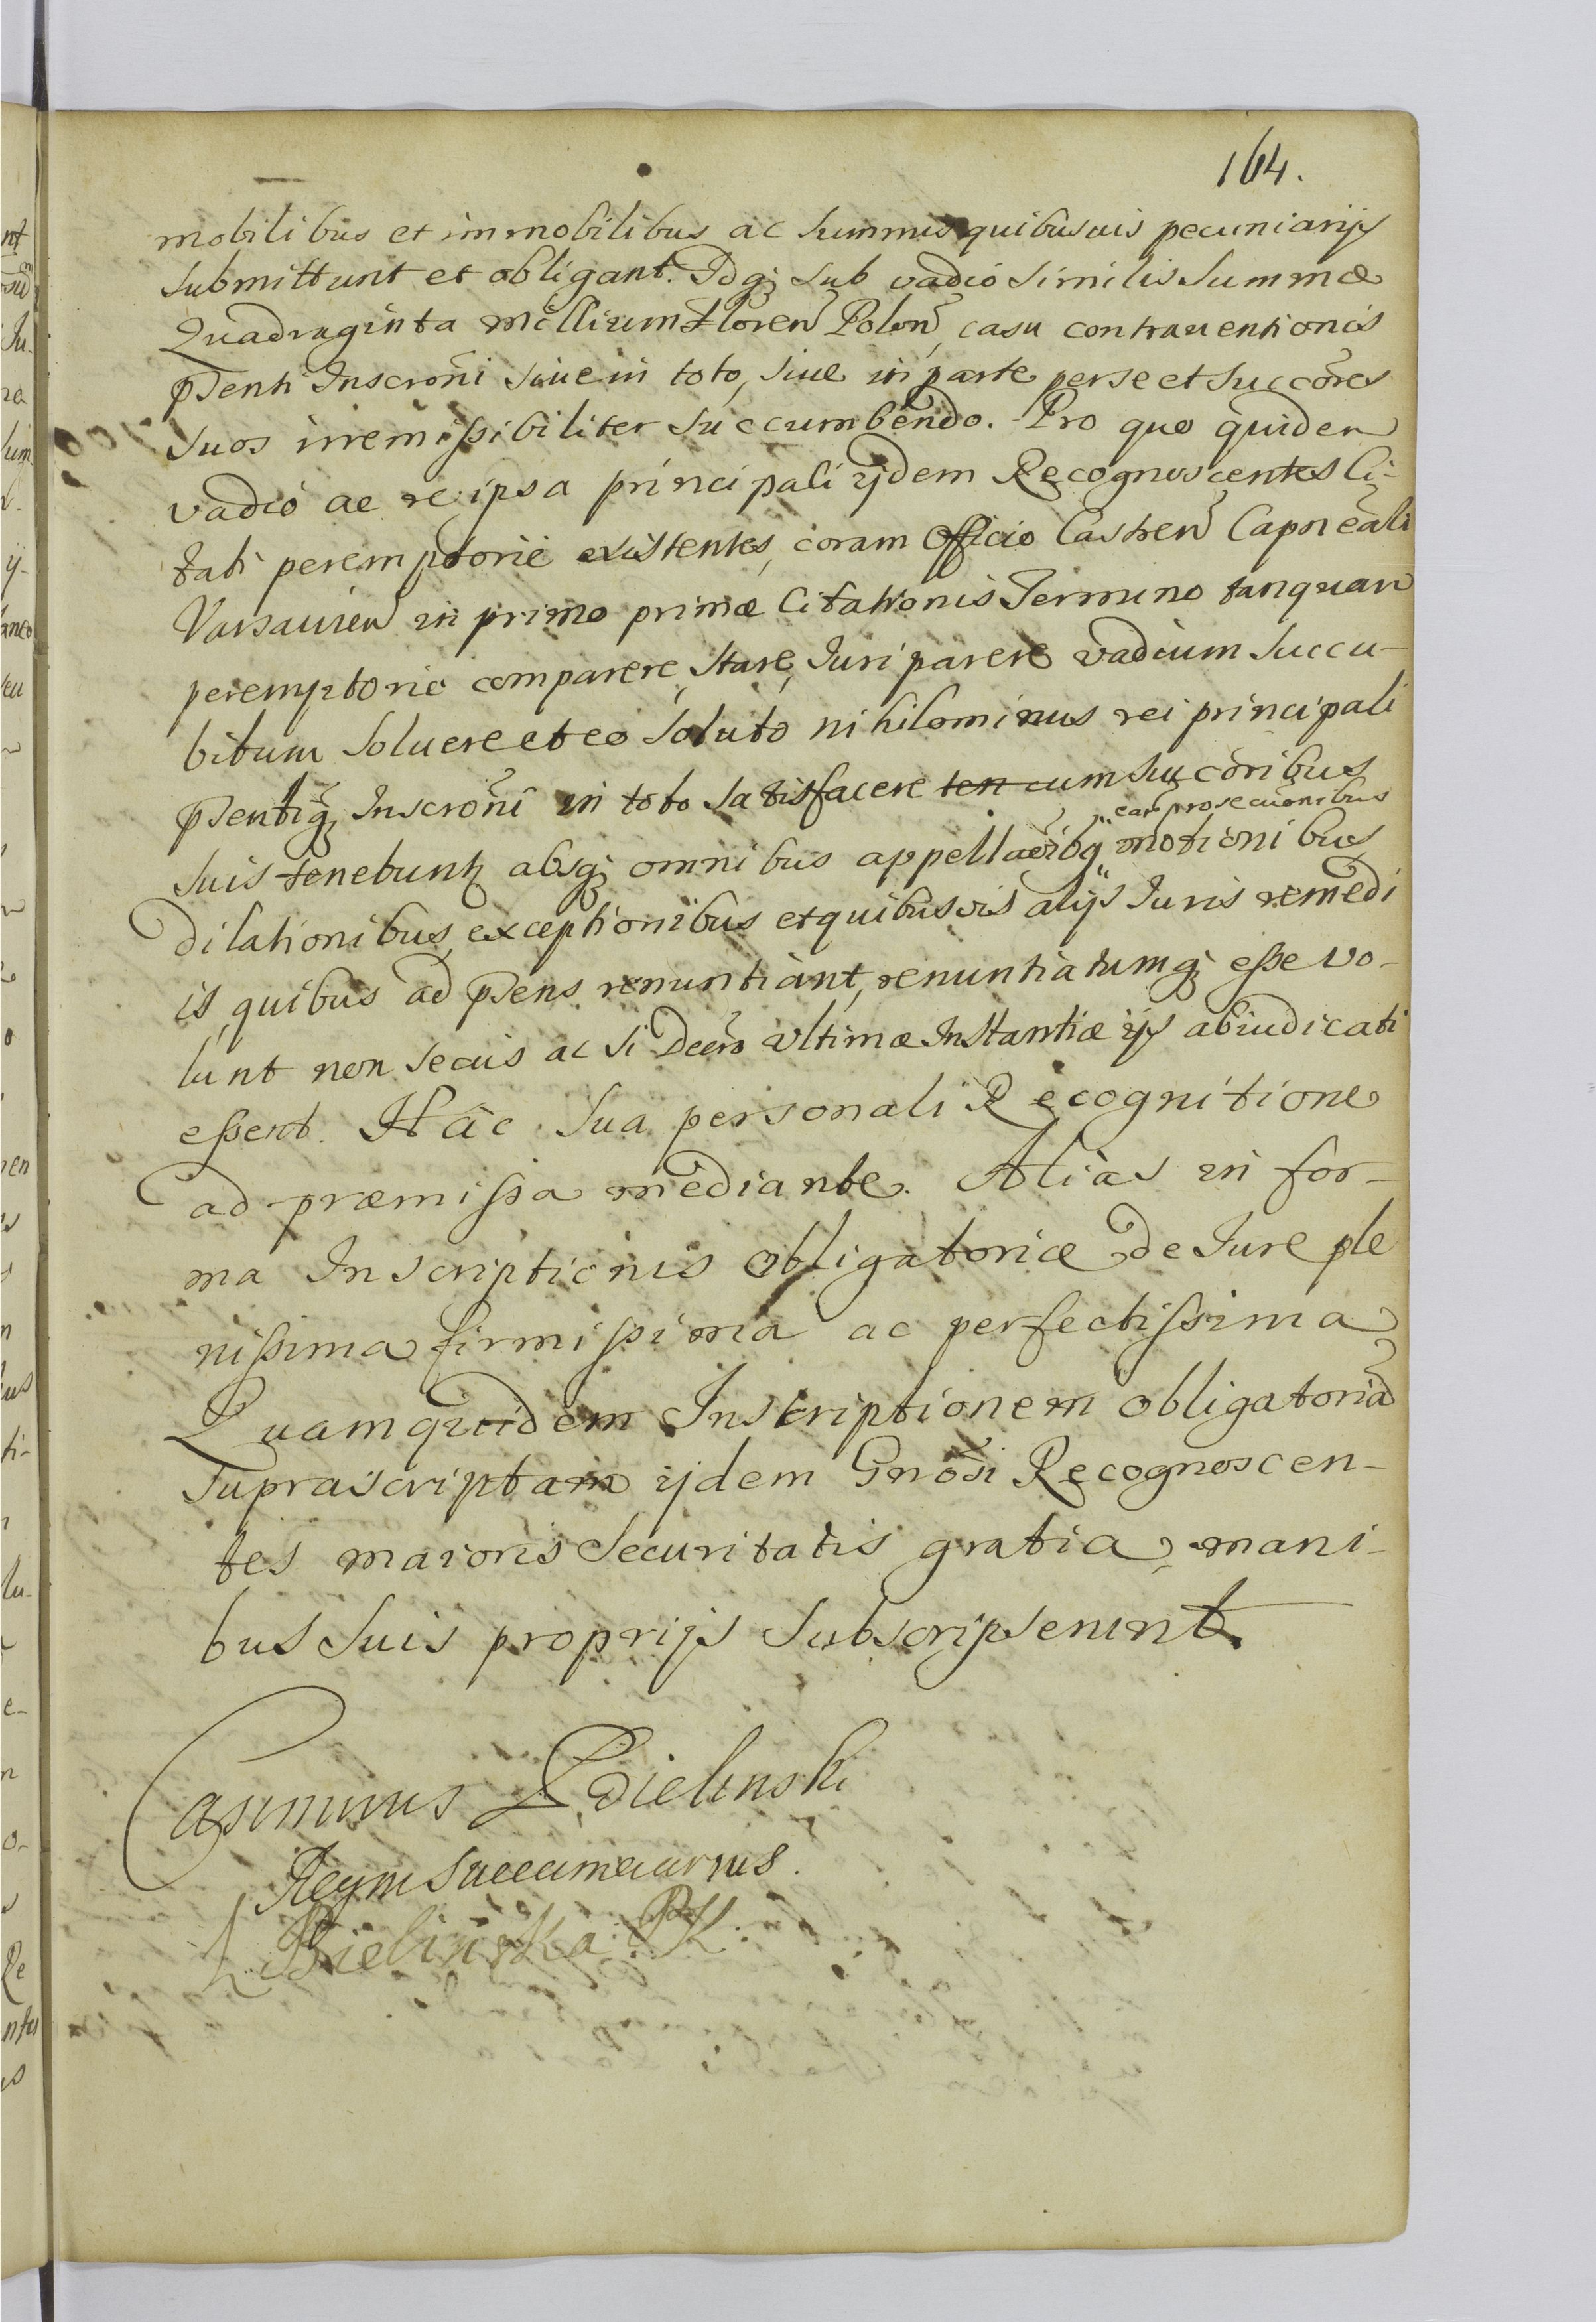 164.
mobilibus et immobilibus ac summis quibusuis pecuniarijs
submittunt et obligant. Idq; sub vadio similis summæ
Quadraginta millium Floren̄ Polon̄, casu contrauentionis
p̄senti Inscrōni siue in toto, siue in parte per se et succōres
suos irremissibiliter succumbendo. Pro quo quidem
vadio ac re ipsa principali ijdem Recognoscentes Ci-
tati peremptorie existentes, coram Officio Castren̄ Capnēali
Varsauien̄ in primo primæ Citationis Termino tanquam
peremptorio comparere, stare, Iuri parere vadium succu-
bitum soluere et eo soluto nihilominus rei principali
p̄sentiq; Inscrōni in toto satisfacere cum succōribus
suis tenebunt̄ absq; omnibus appellaōibq "earq̄ prosecuōnibus" motionibus
dilationibus, exceptionibus et quibusvis alijs Iuris remedi
is, quibus ad p̄sens renuntiant, renuntiatumq; esse vo-
lunt non secus ac si Decr̄o vltimæ Instantiæ ijs abiudicati
essent. Hac sua personali Recognitione
ad præmissa mediante. Alias in for-
ma Inscriptionis obligatoriæ de Iure ple
nissima firmissima ac perfectissima
Quamquidem Inscriptionem obligatoriā
suprascriptam ijdem Gnōsi Recognoscen-
tes maioris securitatis gratia, mani-
bus suis proprijs subscripserunt.
Casimirus Bielinski
Regni Succamerarius.
L Bielinska PK.